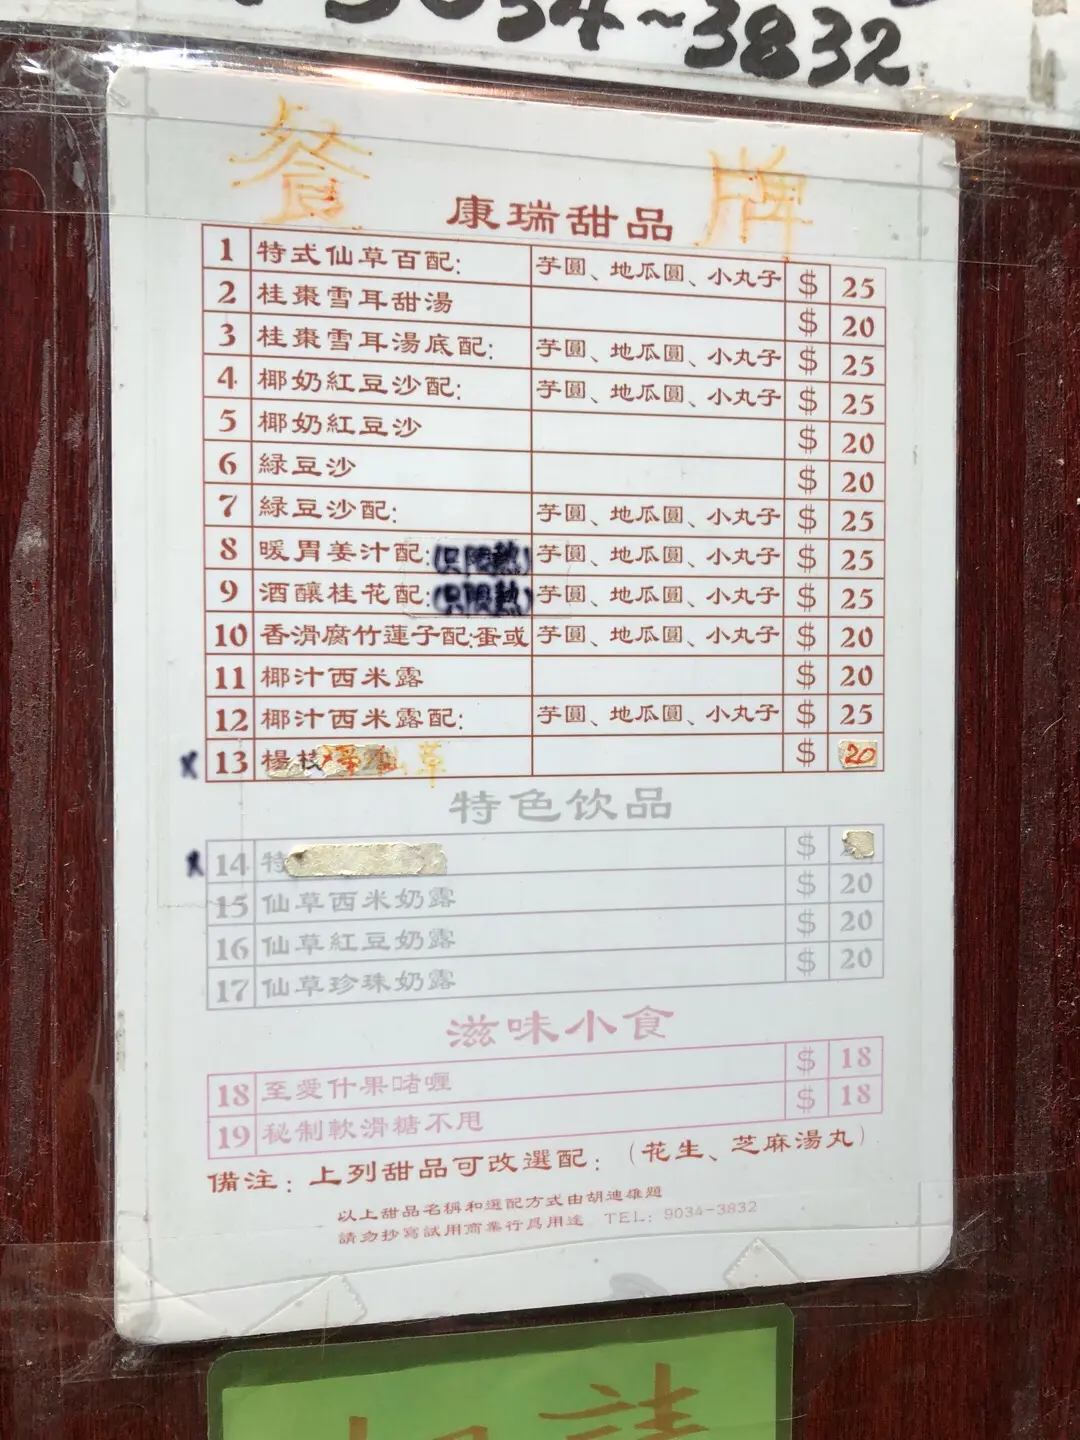 9034~3832
餐 牌
康瑞甜品
1 特式仙草百配: 芋圓、地瓜圓、小丸子 $ 25
2 桂棗雪耳甜湯 $ 20
3 桂棗雪耳湯底配: 芋圓、地瓜圓、小丸子 $ 25
4 椰奶紅豆沙配: 芋圓、地瓜圓、小丸子 $ 25
5 椰奶紅豆沙 $ 20
6 綠豆沙 $ 20
7 綠豆沙配: 芋圓、地瓜圓、小丸子 $ 25
8 暖胃姜汁配:(只限熱) 芋圓、地瓜圓、小丸子 $ 25
9 酒釀桂花配:(只限熱) 芋圓、地瓜圓、小丸子 $ 25
10 香滑腐竹蓮子配:蛋或 芋圓、地瓜圓、小丸子 $ 20
11 椰汁西米露 $ 20
12 椰汁西米露配: 芋圓、地瓜圓、小丸子 $ 25
x 13 楊枝 草 $ 20
特色饮品
x 14 特 $
15 仙草西米奶露 $ 20
16 仙草紅豆奶露 $ 20
17 仙草珍珠奶露 $ 20
滋味小食
18 至愛什果啫喱 $ 18
19 秘制軟滑糖不甩 $ 18
備注: 上列甜品可改選配: (花生、芝麻湯丸)
以上甜品名稱和選配方式由胡迪雄題
請勿抄寫試用商業行爲用途 TEL: 9034-3832
請